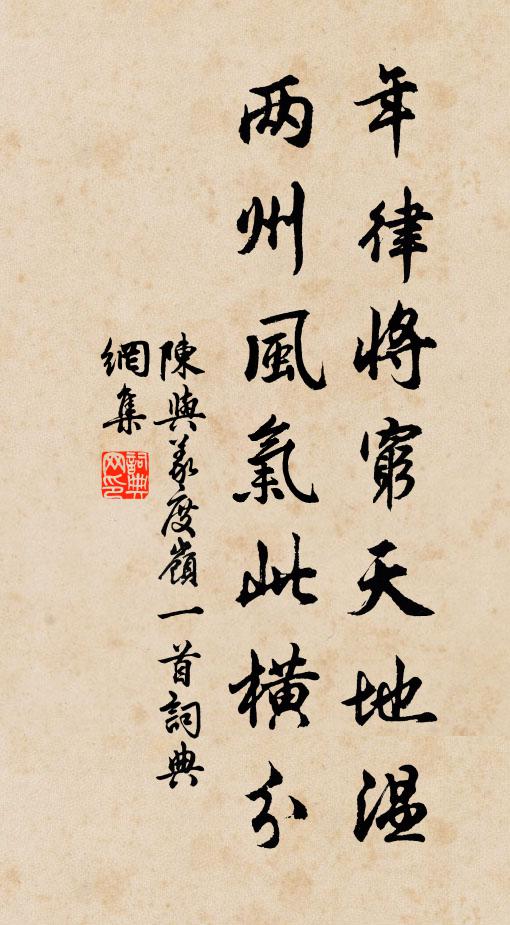 年律将窮天地温
两州風氣此橫分
陳與義度嶺一首詞典
網集
詞典
网印